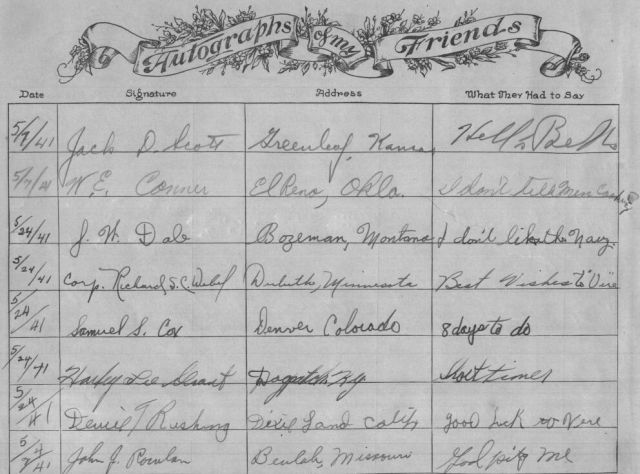 Autographs of my Friends
Date Signature Address What They Had to Say
5/7/41 Jack D. Scott Greenleaf, Kansas, Hells Bells
5/7/41 W. E. Conner El Reno, Okla. I don't
5/24/41 J. W. Dale Bozeman, Montana I don't like the Navy.
5/24/41 Corp. Richard S. Duluth, Minnesota Best Wishes to
5/24/41 Samuel S. Cox Denver Colorado 8 days to do
5/24/41 Harley Lee Ky Short timer
5/24/41 T Rushing Dixie Land Calif good luck to Vere
5/24/41 John J. Beulah, Missouri God pity me